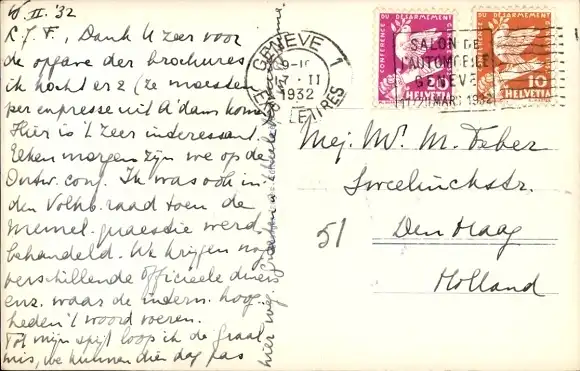 10 II '32
R.J.F., Dank U zeer voor
de opgave der brochures
ik kocht er 2 (ze moesten
per expresse uit A'dam komen
Hier is 't zeer interessant.
Iederen morgen zijn we op de
Ontw. conf. Ik was ook in
den Volkb.raad toen de
Memel-quaestie werd
behandeld. We krijgen nog
verschillende officieele diners
enz. waar de intern. hoog-
heden 't woord voeren.
Tot mijn spijt loop ik de Graal
mis, we kunnen dien dag pas
hier weg.
GENÈVE 1
II
1932
LETTRES
SALON DE
L'AUTOMOBILE
GENÈVE
MARS 1932
CONFERENCE DU DESARMEMENT
HELVETIA
CONFERENCE DU DESARMEMENT
10
HELVETIA
Mej. Mr. M. Feber
Sweelinckstr.
51
Den Haag
Holland